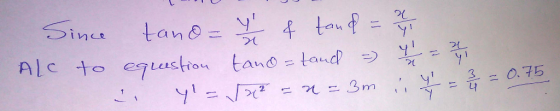 Since tanθ = y'/x & tanϕ = x/y'
A/C to equestion tanθ = tanϕ ⇒ y'/x = x/y'
∴ y' = √x² = x = 3m ∴ y'/y = 3/4 = 0.75